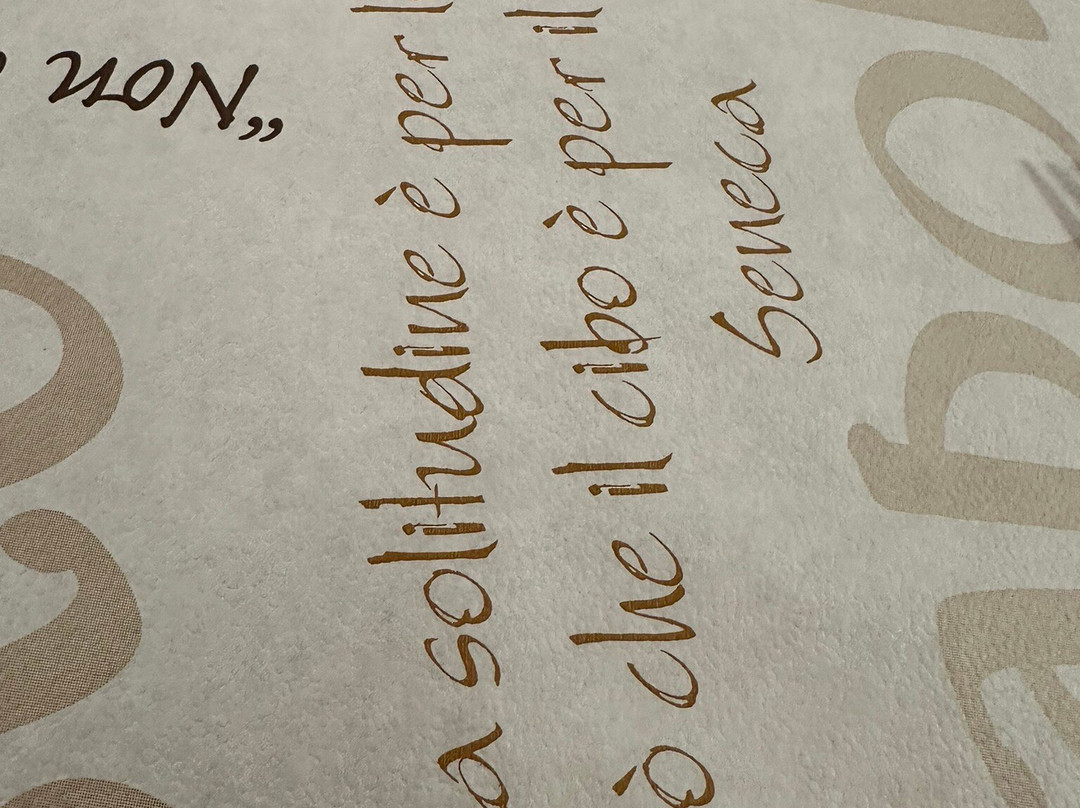 a solitudine è per l
ò che il cibo è per il
Seneca
“Non